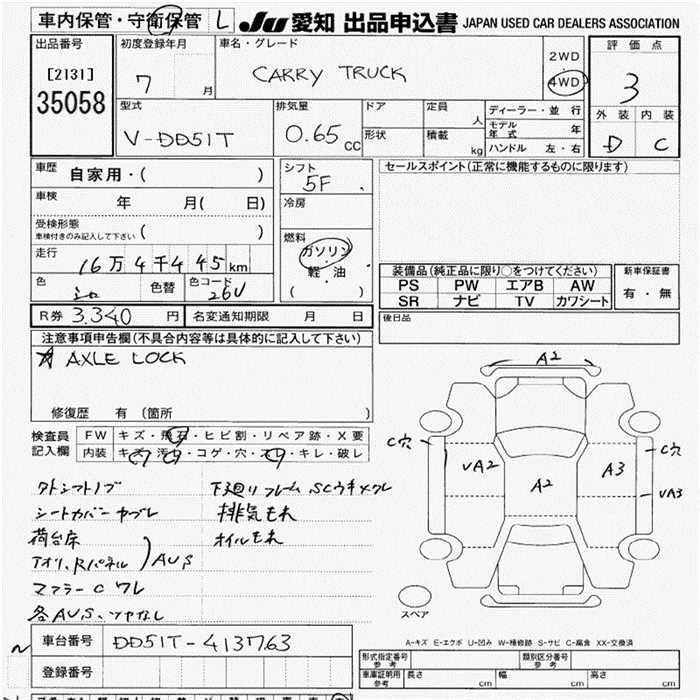 車内保管・守衛保管 L JU 愛知 出品申込書 JAPAN USED CAR DEALERS ASSOCIATION
出品番号 初度登録年月 車名・グレード 2WD 評価点
[2131] 7 月 CARRY TRUCK ・ 3
35058 4WD
型式 排気量 ドア 定員 人 ディーラー・並行 外装 内装
V-DD51T 0.65 cc 形状 積載 kg モデル年式 年 D C
ハンドル 左・右
車歴 自家用・( ) シフト 5F セールスポイント(正常に機能するものに限ります)
車検 年 月( 日) 冷房
受検形態
車検付きのみ記入して下さい ( ) 燃料
走行 16万4千445km ガソリン
軽・油
( )
色 シロ 色替 色コード 26U
装備品(純正品に限り○をつけてください) 新車保証書
PS PW エアB AW 有・無
SR ナビ TV カワシート
R券 3,340 円 名変通知期限 月 日 後日品
注意事項申告欄(不具合内容等は具体的に記入して下さい)
AXLE LOCK
修復歴 有(箇所 )
検査員 FW キズ・飛石・ヒビ割・リペア跡・X要
記入欄 内装 キズ・汚れ・コゲ・穴・スレ・キレ・破レ
シートカバーヤブレ 排気もれ
荷台床 オイルもれ
アオリ、Rパネル AUS
マフラーC ワレ
A2
C穴 C穴
VA2 A2 A3 VA3
スペア
A-キズ E-エクボ U-凹み W-補修跡 S-サビ C-腐食 XX-交換済
車台番号 DD51T-413763
登録番号
形式指定番号 参考 類別区分番号 参考
車庫証明用 参考 長さ cm 幅 cm 高さ cm